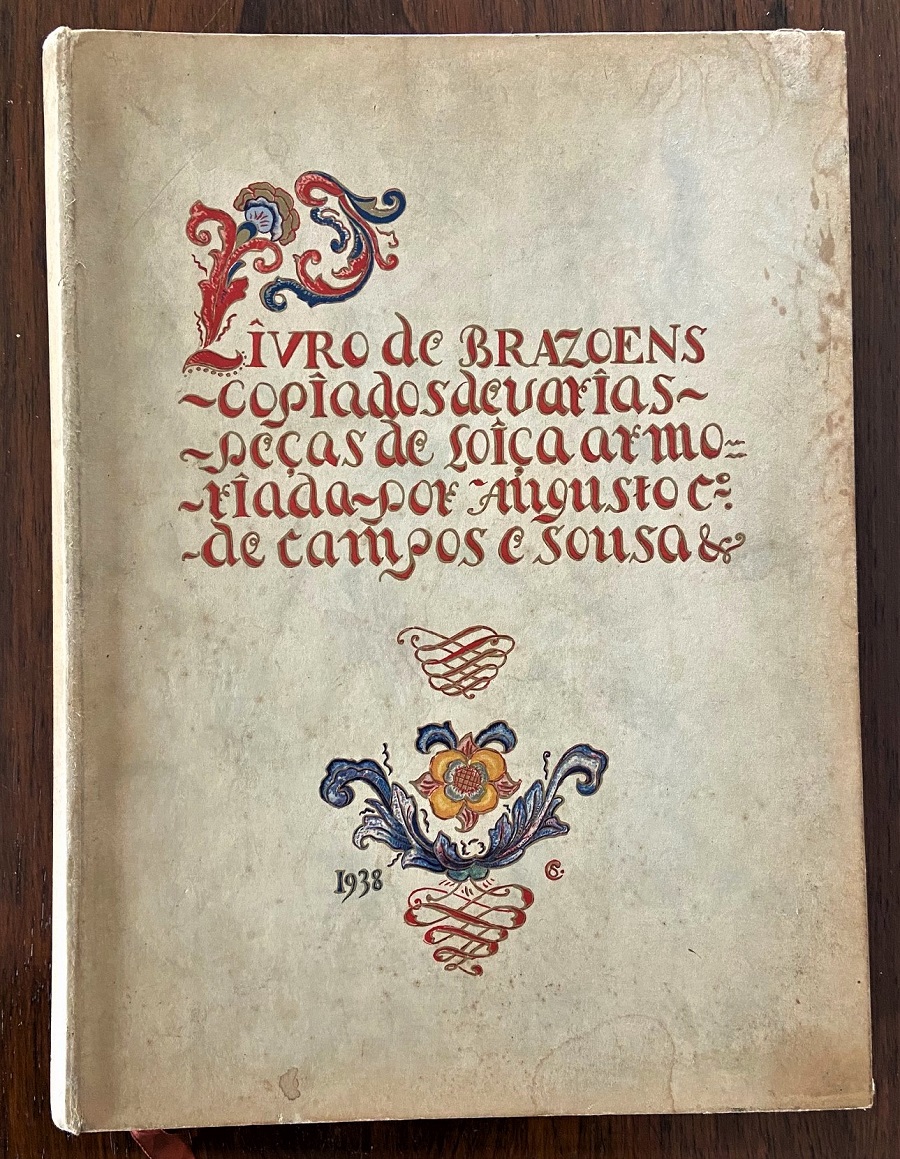 LÎVRO de BRAZOENS
~copîados de varîas~
~peças de loîça armo~
~rîada~por Augusto Cº.
~de campos e sousa &
1938